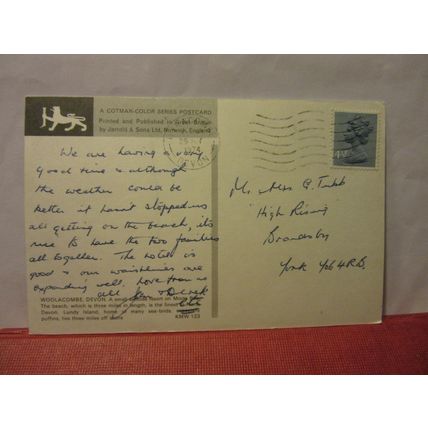 A COTMAN-COLOR SERIES POSTCARD
Printed and Published in Great Britain
by Jarrold & Sons Ltd, Norwich, England
We are having a very
good time & although
the weather could be
better it hasn't stopped us
all getting on the beach, its
nice to have the two families
all together. The hotel is
good & our waistlines are
expanding well. Love from us
all & Derek
WOOLACOMBE, DEVON. A small resort on
The beach, which is three miles in length, is the finest
Devon. Lundy Island, home of many sea-birds
puffins, lies three miles off shore
KMW 123
DEVON
Mr. & Mrs G. Tubb
"High Rising
Brandsby
York YO6 4RB.